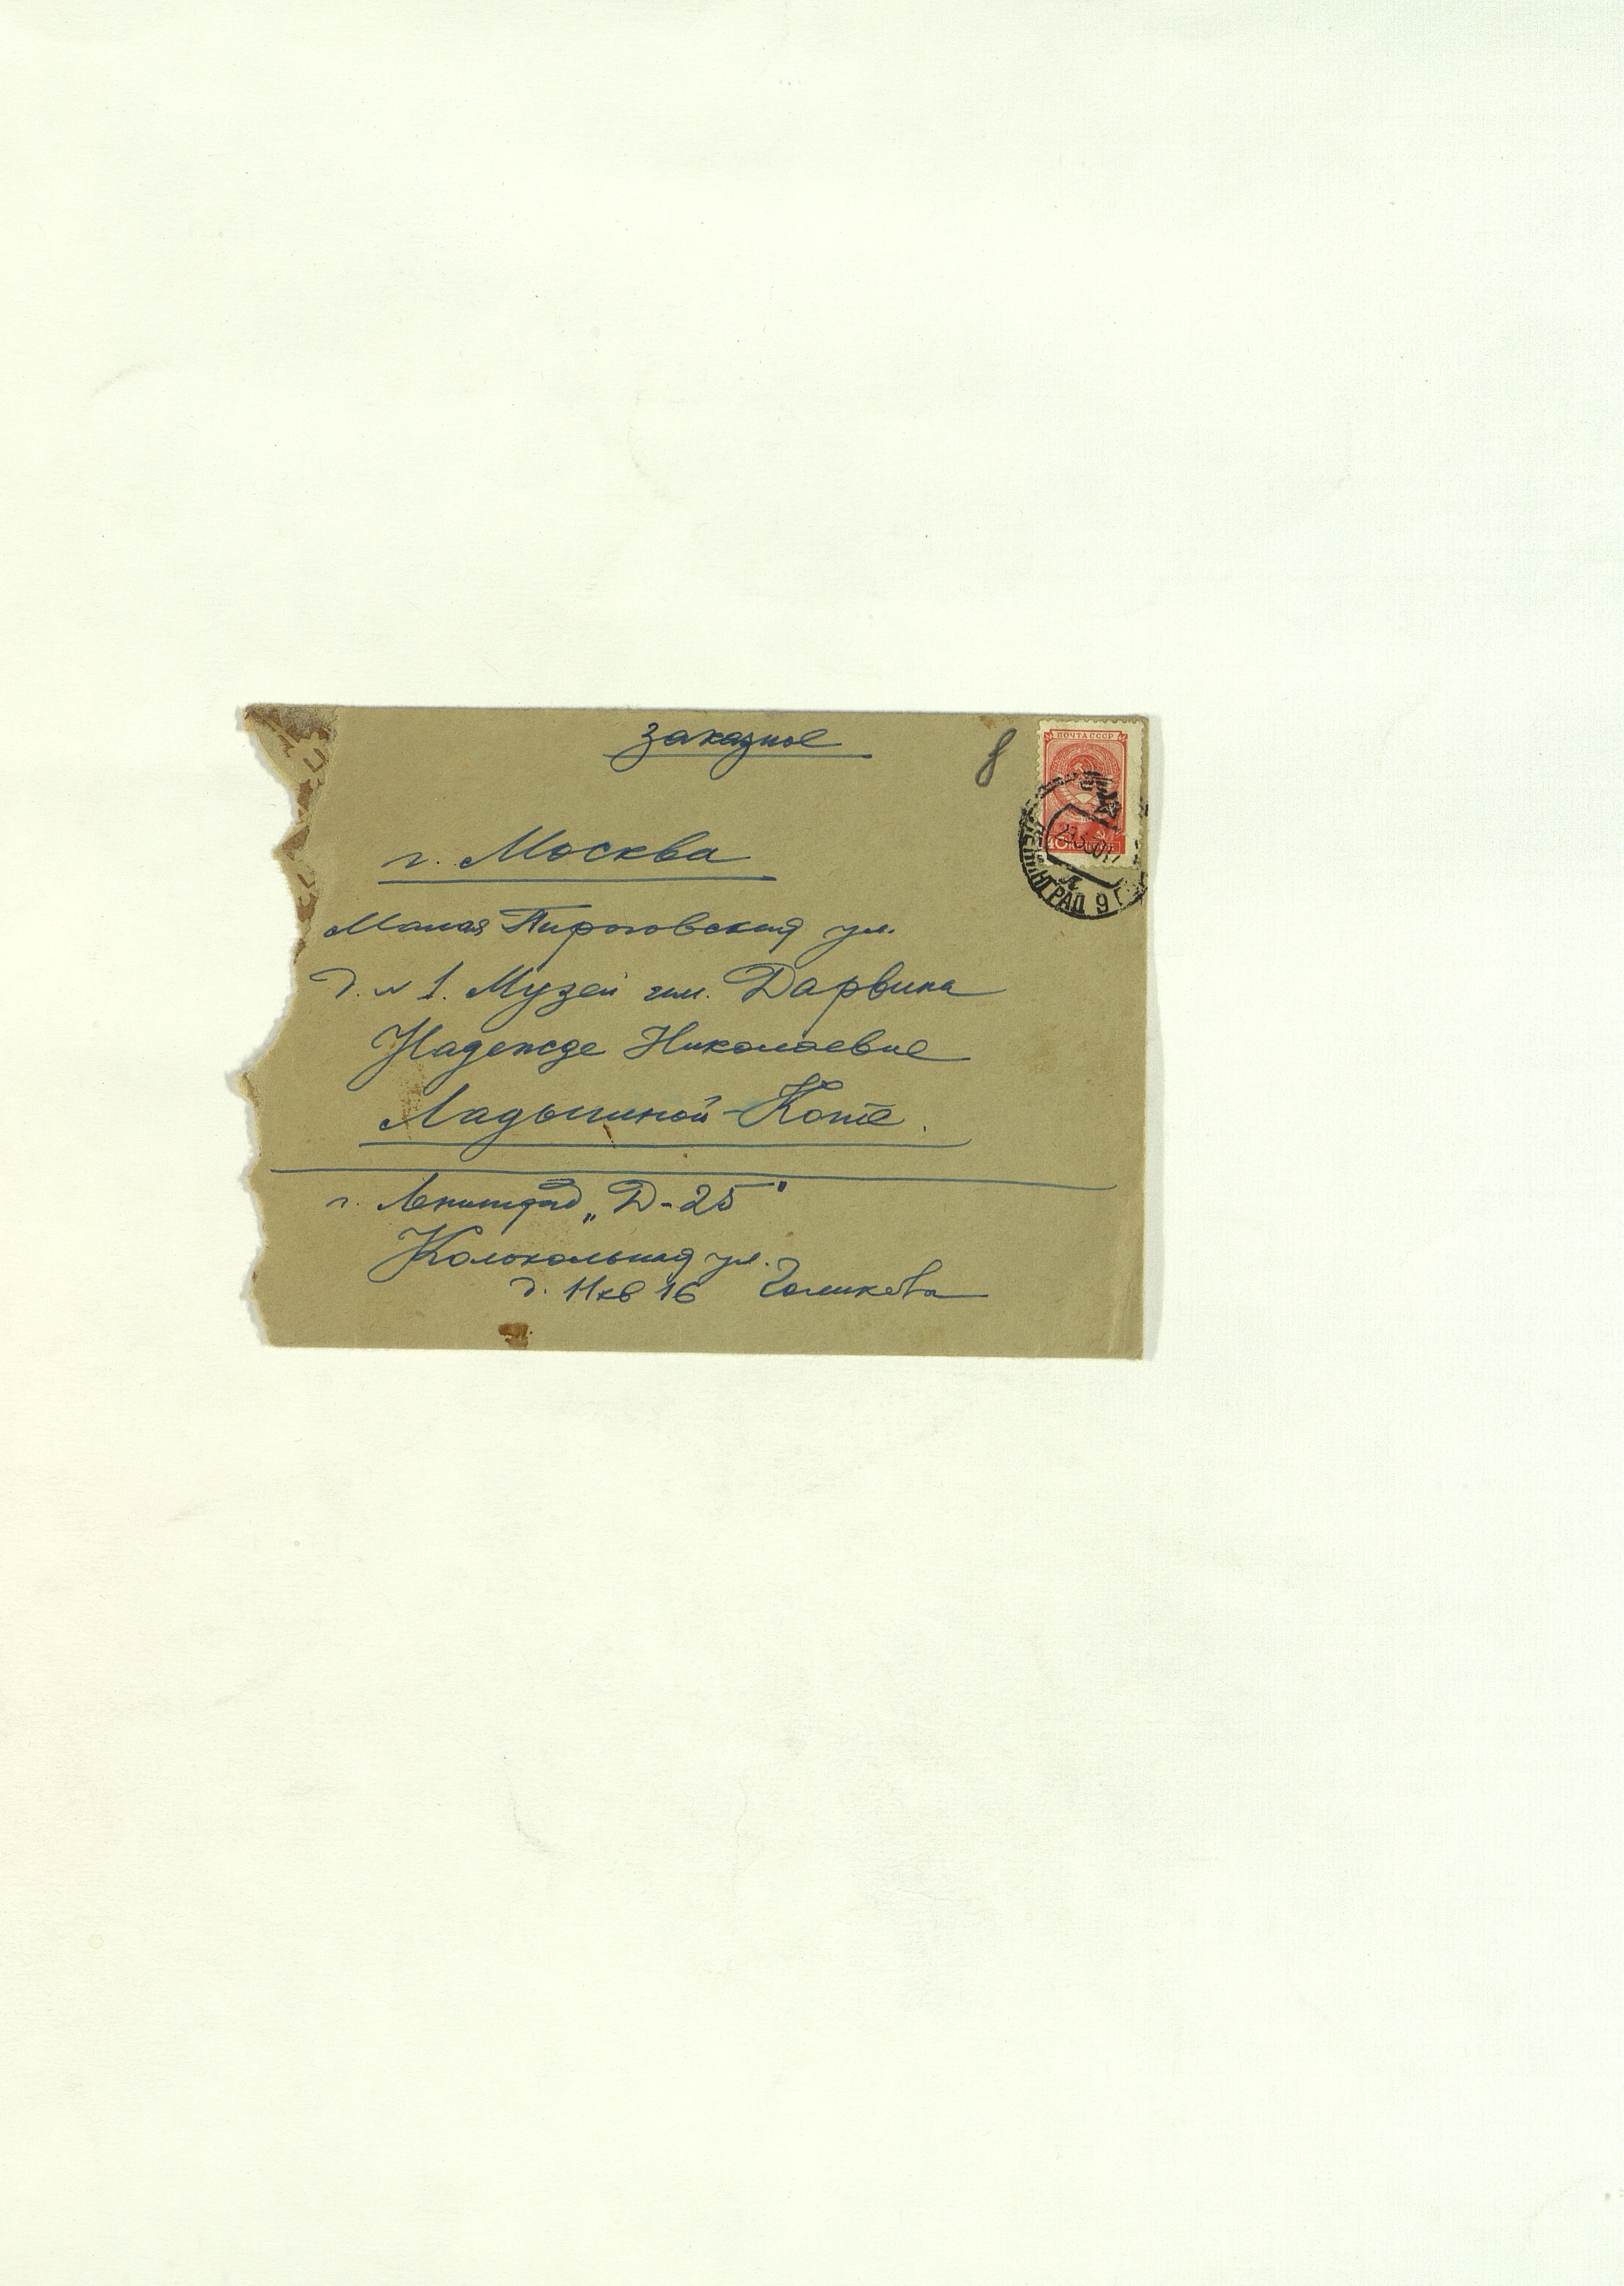 заказное
8
ПОЧТА СССР
г. Москва
Малая Пироговская ул.
д. № 1. Музей им. Дарвина
Надежде Николаевне
Ладыгиной-Котс.
ЛЕНИНГРАД 9
г. Ленинград „Д-25"
Колокольная ул.
д. 11 кв 16 Голикова